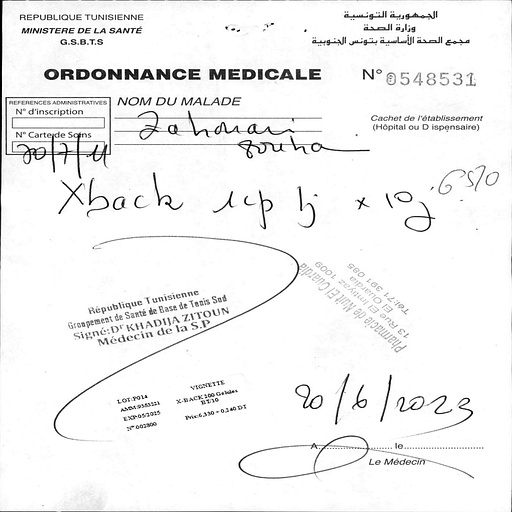 REPUBLIQUE TUNISIENNE
MINISTERE DE LA SANTÉ
G.S.B.T.S
الجمهورية التونسية
وزارة الصحة
مجمع الصحة الأساسية بتونس الجنوبية
ORDONNANCE MEDICALE
N° 0548531
REFERENCES ADMINISTRATIVES
N° d'inscription
N° Carte de Soins
20/7/11
NOM DU MALADE
Zahouani
Souha
Cachet de l'établissement
(Hôpital ou D ispensaire)
Xback 1cp 1j x 10j
République Tunisienne
Groupement de Santé de Base de Tunis Sud
Signé: Dr KHADIJA ZITOUN
Médecin de la S.P
Pharmacie de Nuit El Ouardia
13 Rue El 1009
Tel: 71 391 085
LOT: P014
AMM: 9353221
EXP: 05/2025
N° 002800
VIGNETTE
X-BACK 200 Gelules
BT/10
Prix: 6,330 - 0,240 DT
20/6/2023
A le
Le Médecin